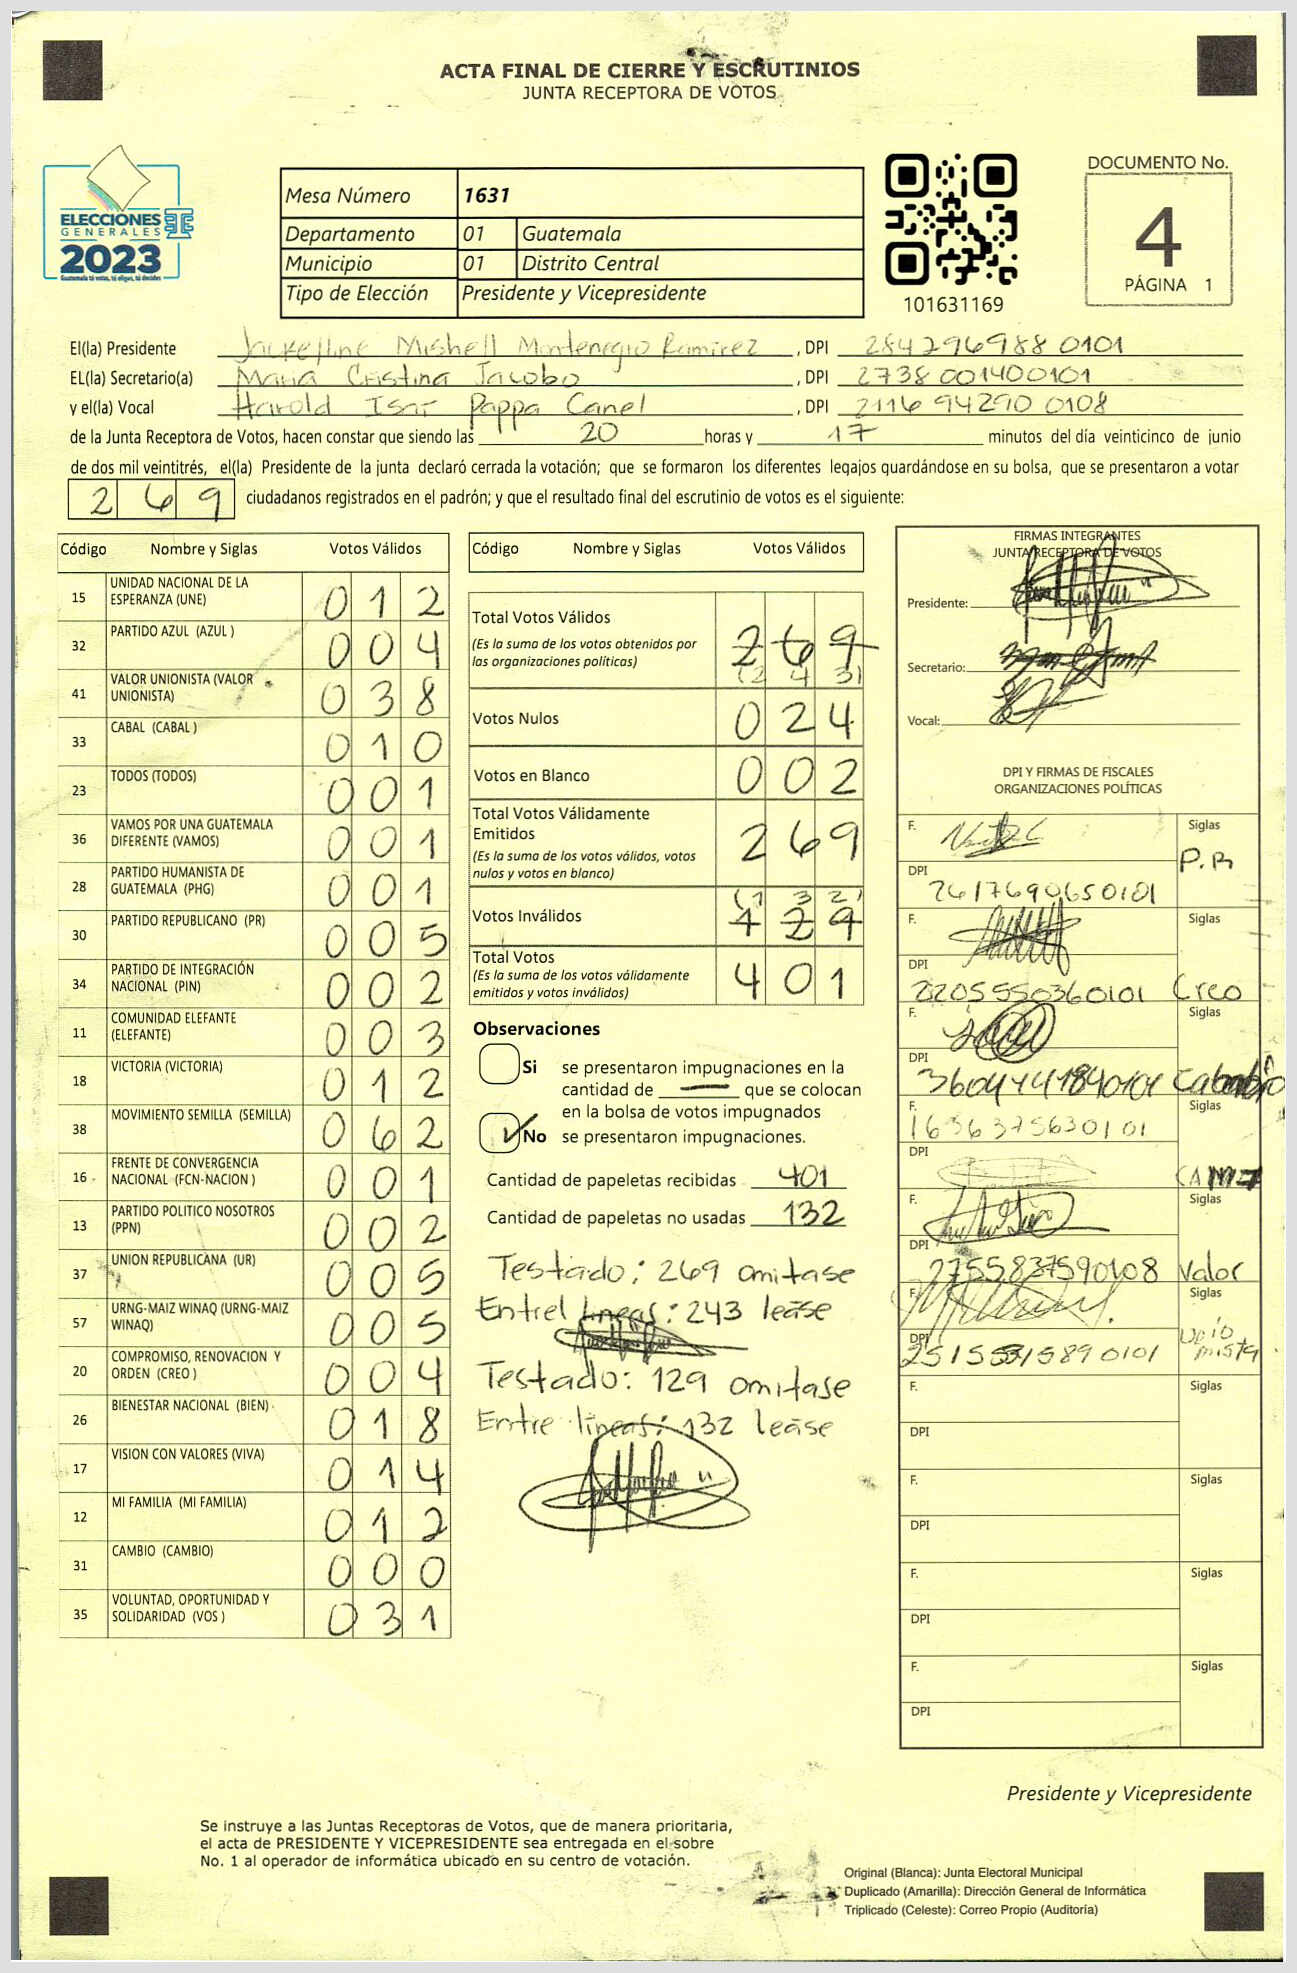 ACTA FINAL DE CIERRE Y ESCRUTINIOS
JUNTA RECEPTORA DE VOTOS
ELECCIONES
GENERALES
2023
Guatemala tú votas, tú eliges, tú decides
Mesa Número 1631
Departamento 01 Guatemala
Municipio 01 Distrito Central
Tipo de Elección Presidente y Vicepresidente
101631169
DOCUMENTO No.
4
PÁGINA 1
El(la) Presidente Jackelline Mishell Montenegro Ramirez , DPI 284296988 0101
EL(la) Secretario(a) Maria Cristina Jacobo , DPI 2738 001400101
y el(la) Vocal Harold Isar Pappa Canel , DPI 2116 94290 0108
de la Junta Receptora de Votos, hacen constar que siendo las 20 horas y 17 minutos del día veinticinco de junio
de dos mil veintitrés, el(la) Presidente de la junta declaró cerrada la votación; que se formaron los diferentes legajos guardándose en su bolsa, que se presentaron a votar
2 6 9 ciudadanos registrados en el padrón; y que el resultado final del escrutinio de votos es el siguiente:
Código Nombre y Siglas Votos Válidos
15 UNIDAD NACIONAL DE LA ESPERANZA (UNE) 0 1 2
32 PARTIDO AZUL (AZUL ) 0 0 4
41 VALOR UNIONISTA (VALOR UNIONISTA) 0 3 8
33 CABAL (CABAL ) 0 1 0
23 TODOS (TODOS) 0 0 1
36 VAMOS POR UNA GUATEMALA DIFERENTE (VAMOS) 0 0 1
28 PARTIDO HUMANISTA DE GUATEMALA (PHG) 0 0 1
30 PARTIDO REPUBLICANO (PR) 0 0 5
34 PARTIDO DE INTEGRACIÓN NACIONAL (PIN) 0 0 2
11 COMUNIDAD ELEFANTE (ELEFANTE) 0 0 3
18 VICTORIA (VICTORIA) 0 1 2
38 MOVIMIENTO SEMILLA (SEMILLA) 0 6 2
16 FRENTE DE CONVERGENCIA NACIONAL (FCN-NACION ) 0 0 1
13 PARTIDO POLITICO NOSOTROS (PPN) 0 0 2
37 UNION REPUBLICANA (UR) 0 0 5
57 URNG-MAIZ WINAQ (URNG-MAIZ WINAQ) 0 0 5
20 COMPROMISO, RENOVACION Y ORDEN (CREO ) 0 0 4
26 BIENESTAR NACIONAL (BIEN) 0 1 8
17 VISION CON VALORES (VIVA) 0 1 4
12 MI FAMILIA (MI FAMILIA) 0 1 2
31 CAMBIO (CAMBIO) 0 0 0
35 VOLUNTAD, OPORTUNIDAD Y SOLIDARIDAD (VOS ) 0 3 1
Código Nombre y Siglas Votos Válidos
Total Votos Válidos 2 6 9
(Es la suma de los votos obtenidos por
las organizaciones políticas) (2 4 3)
Votos Nulos 0 2 4
Votos en Blanco 0 0 2
Total Votos Válidamente
Emitidos 2 6 9
(Es la suma de los votos válidos, votos
nulos y votos en blanco)
(1 3 2)
Votos Inválidos 1 2 9
Total Votos 4 0 1
(Es la suma de los votos válidamente
emitidos y votos inválidos)
Observaciones
Si se presentaron impugnaciones en la
cantidad de que se colocan
en la bolsa de votos impugnados
No se presentaron impugnaciones.
Cantidad de papeletas recibidas 401
Cantidad de papeletas no usadas 132
Testado: 269 omitase
Entrel lineas: 243 lease
Testado: 129 omitase
Entre lineas: 132 lease
FIRMAS INTEGRANTES
JUNTA RECEPTORA DE VOTOS
Presidente:
Secretario:
Vocal:
DPI Y FIRMAS DE FISCALES
ORGANIZACIONES POLÍTICAS
F. Siglas
P.R
DPI 2617690650101
F. Siglas
DPI 2205550360101 Creo
F. Siglas
DPI 3604441840101
F. Siglas
1636375630101
DPI
F. Siglas
DPI 2755837590108 Valor
F. Siglas
Unio
mista
DPI
F. Siglas
DPI
F. Siglas
DPI
F. Siglas
DPI
F. Siglas
DPI
Presidente y Vicepresidente
Se instruye a las Juntas Receptoras de Votos, que de manera prioritaria,
el acta de PRESIDENTE Y VICEPRESIDENTE sea entregada en el sobre
No. 1 al operador de informática ubicado en su centro de votación.
Original (Blanca): Junta Electoral Municipal
Duplicado (Amarilla): Dirección General de Informática
Triplicado (Celeste): Correo Propio (Auditoría)